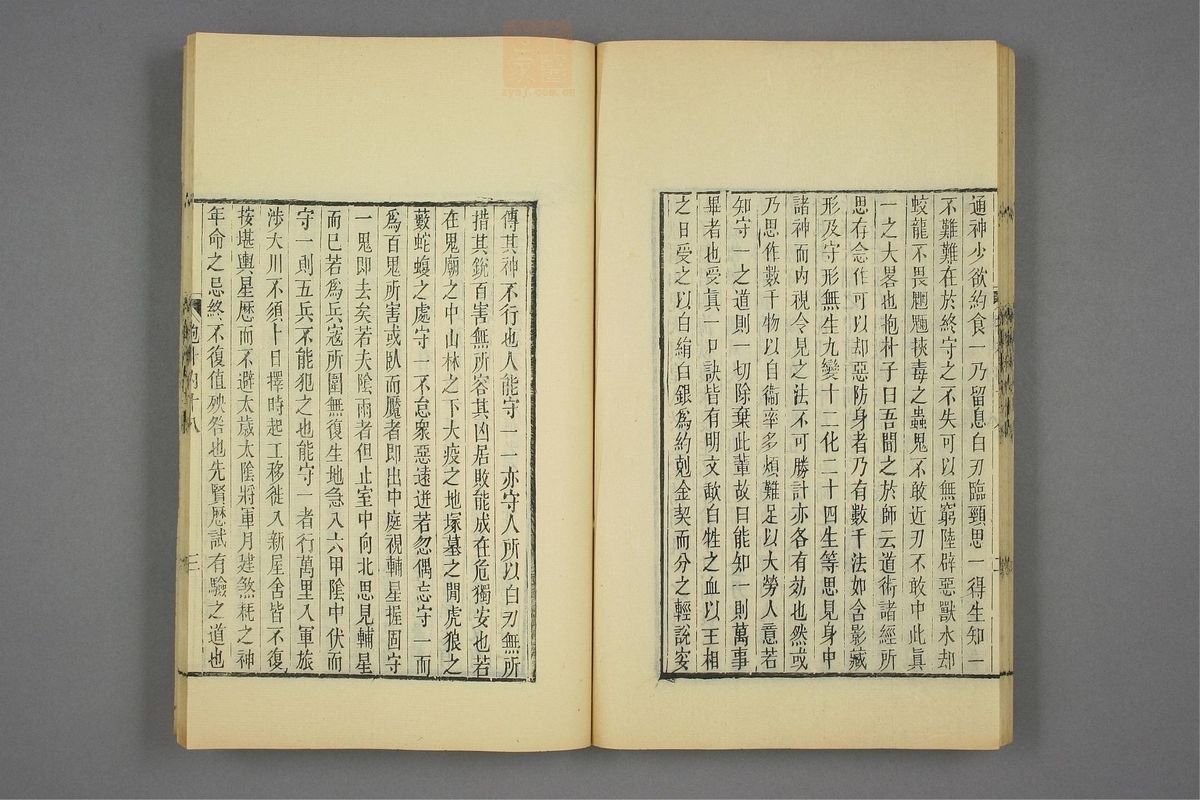 通神少欲約食一乃留息白刃臨頸思一得生知一
不難難在於終守之不失可以無窮陸辟惡獸水却
蛟龍不畏魍魎挾毒之蟲鬼不敢近刃不敢中此眞
一之大畧也抱朴子曰吾聞之於師云道術諸經所
思存念作可以却惡防身者乃有數千法如含影藏
形及守形無生九變十二化二十四生等思見身中
諸神而內視令見之法不可勝計亦各有効也然或
乃思作數千物以自衞率多煩難足以大勞人意若
知守一之道則一切除棄此輩故曰能知一則萬事
畢者也受眞一口訣皆有明文歃白牲之血以王相
之日受之以白絹白銀爲約剋金契而分之輕說妄
傳其神不行也人能守一一亦守人所以白刃無所
措其銳百害無所容其凶居敗能成在危獨安也若
在鬼廟之中山林之下大疫之地塚墓之閒虎狼之
藪蛇蝮之處守一不怠衆惡遠迸若忽偶忘守一而
爲百鬼所害或臥而魘者即出中庭視輔星握固守
一鬼即去矣若夫陰雨者但止室中向北思見輔星
而已若爲兵寇所圍無復生地急入六甲陰中伏而
守一則五兵不能犯之也能守一者行萬里入軍旅
涉大川不須卜日擇時起工移徙入新屋舍皆不復
按堪輿星歷而不避太歲太陰將軍月建煞耗之神
年命之忌終不復值殃咎也先賢歷試有驗之道也
三
zysj.com.cn